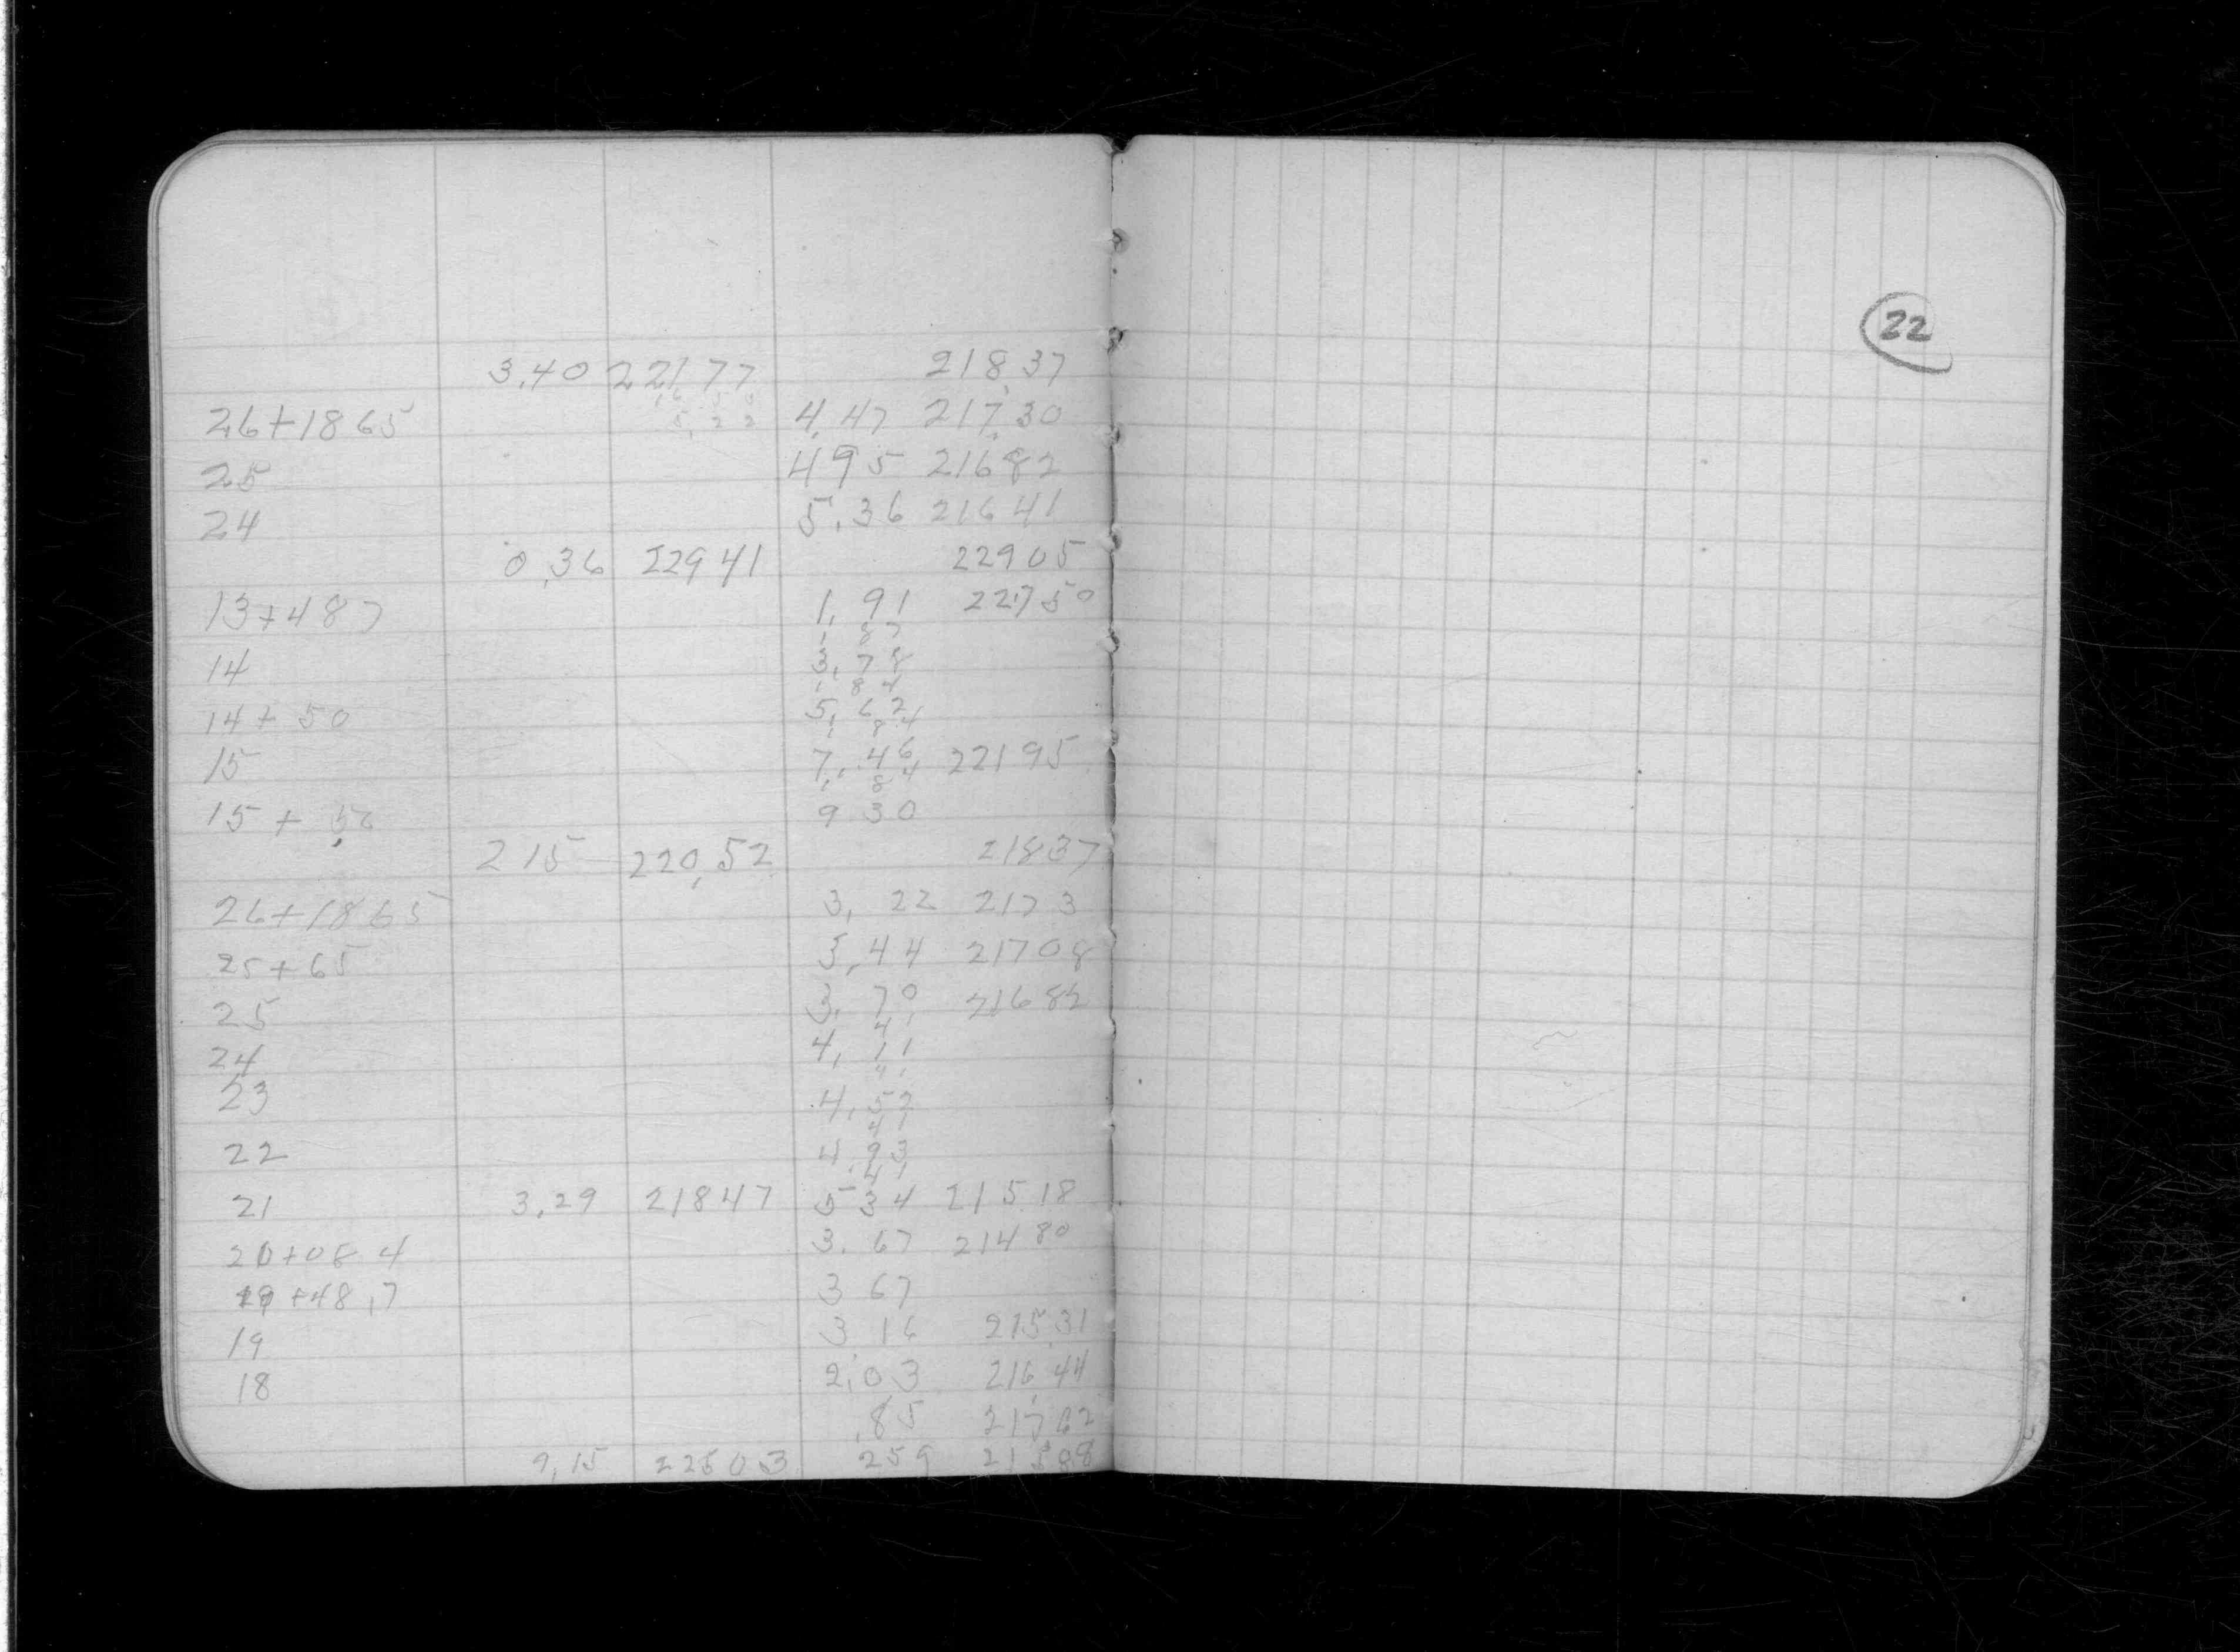 3.40 221,77 218,37
26+1865 4,47 217,30
5,22
25 495 21682
24 5.36 21641
0.36 22941 22905
13+487 1,91 22750
1 87
14 3,78
1 84
14+50 5,62
1 84
15 7,46 22195
1 84
15+50 9 30
215 220,52 21837
26+1865 3, 22 2173
25+65 3,44 21708
25 3,70 21682
41
24 4, 11
41
23 4,52
41
22 4,93
41
21 3.29 21847 5 34 21518
20+08 4 3.67 21480
19+48,7 3 67
19 3 16 215.31
18 2,03 216,44
.85 21762
9,15 22503 259 21588
22